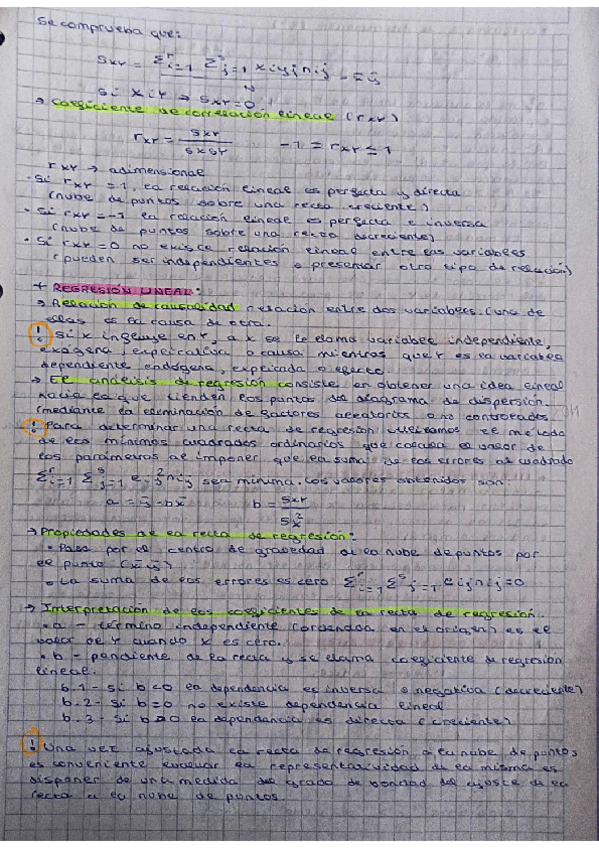 Se comprueba que:
Sxy = Σ^r_i=1 Σ^s_j=1 xi yj nij / N - x̄ ȳ
Si X i Y → Sxy = 0
→ Coeficiente de correlación lineal (rxy)
rxy = Sxy / SxSy    -1 ≤ rxy ≤ 1
rxy → adimensional
· Si rxy = 1, la relación lineal es perfecta y directa
(nube de puntos sobre una recta creciente)
· Si rxy = -1 la relación lineal es perfecta e inversa
(nube de puntos sobre una recta decreciente)
· Si rxy = 0 no existe relación lineal entre las variables
(pueden ser independientes o presentar otro tipo de relación)
+ REGRESIÓN LINEAL:
→ Relación de causalidad relación entre dos variables. (una de
ellas es la causa de otra.
! Si X influye en Y, a X se le llama variable independiente,
exógena, explicativa o causa mientras que Y es la variable
dependiente, endógena, explicada o efecto.
→ El análisis de regresión consiste en obtener una idea lineal
hacia la que tienden los puntos del diagrama de dispersión.
(mediante la eliminación de factores aleatorios o no controlados
! Para determinar una recta de regresión utilizamos el método
de los mínimos cuadrados ordinarios que calcula el valor de
los parámetros al imponer que la suma de los errores al cuadrado
Σ^r_i=1 Σ^s_j=1 e²ij nij sea mínima. Los valores obtenidos son:
a = ȳ - bx̄    b = Sxy / Sx²
→ Propiedades de la recta de regresión:
• Pasa por el centro de gravedad de la nube de puntos por
el punto (x̄, ȳ)
• La suma de los errores es cero Σ^r_i=1 Σ^s_j=1 eij nij = 0
→ Interpretación de los coeficientes de la recta de regresión.
• a - término independiente (ordenada en el origen) es el
valor de Y cuando X es cero.
• b - pendiente de la recta y se llama coeficiente de regresión
lineal.
b.1 - Si b<0 la dependencia es inversa o negativa (decreciente)
b.2 - Si b=0 no existe dependencia lineal
b.3 - Si b>0 la dependencia es directa (creciente)
! Una vez ajustada la recta de regresión a la nube de puntos
es conveniente evaluar la representatividad de la misma es
disponer de una medida del grado de bondad del ajuste de la
recta a la nube de puntos.